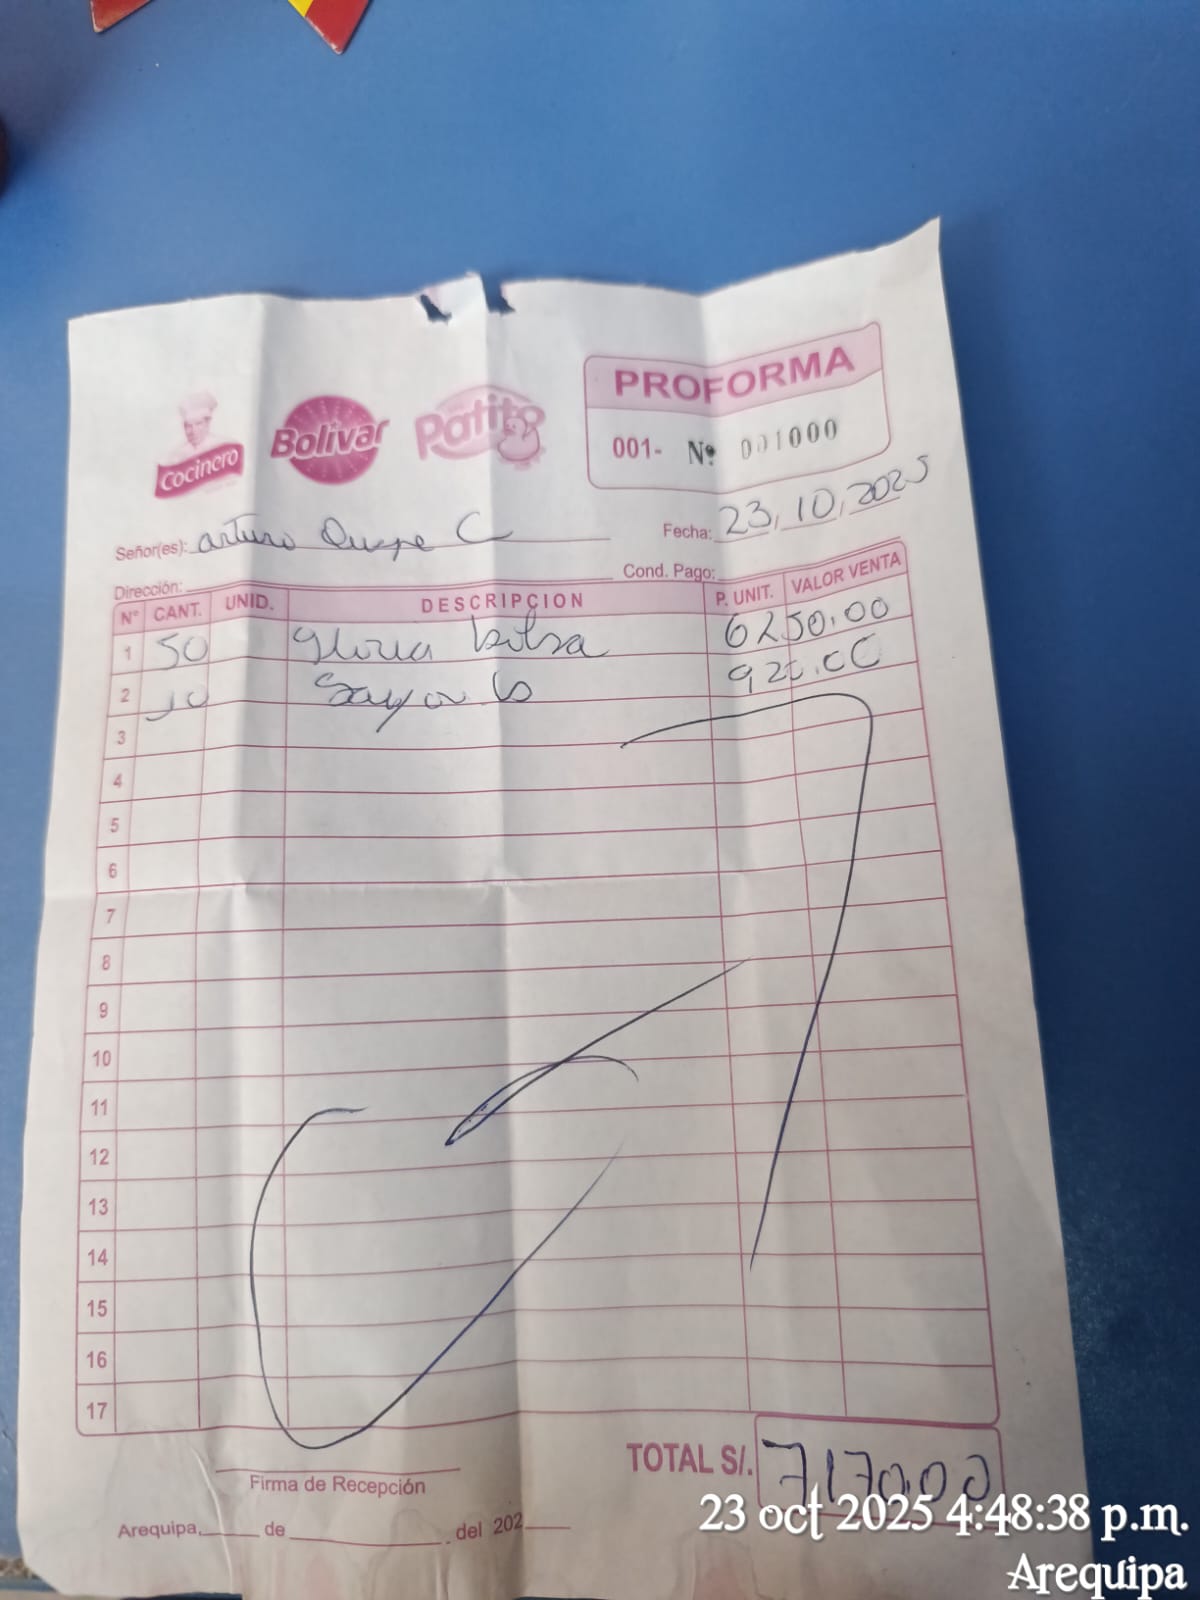 Cocinero
Bolivar
Patito
PROFORMA
001- Nº 001000
Señor(es): arturo Quispe C
Fecha: 23, 10, 2025
Dirección:
Cond. Pago:
Nº CANT. UNID. DESCRIPCION P. UNIT. VALOR VENTA
1 50 Gloria bolsa 6250.00
2 10 920.00
3
4
5
6
7
8
9
10
11
12
13
14
15
16
17
TOTAL S/. 7170.00
Firma de Recepción
Arequipa, de del 202
23 oct 2025 4:48:38 p.m.
Arequipa